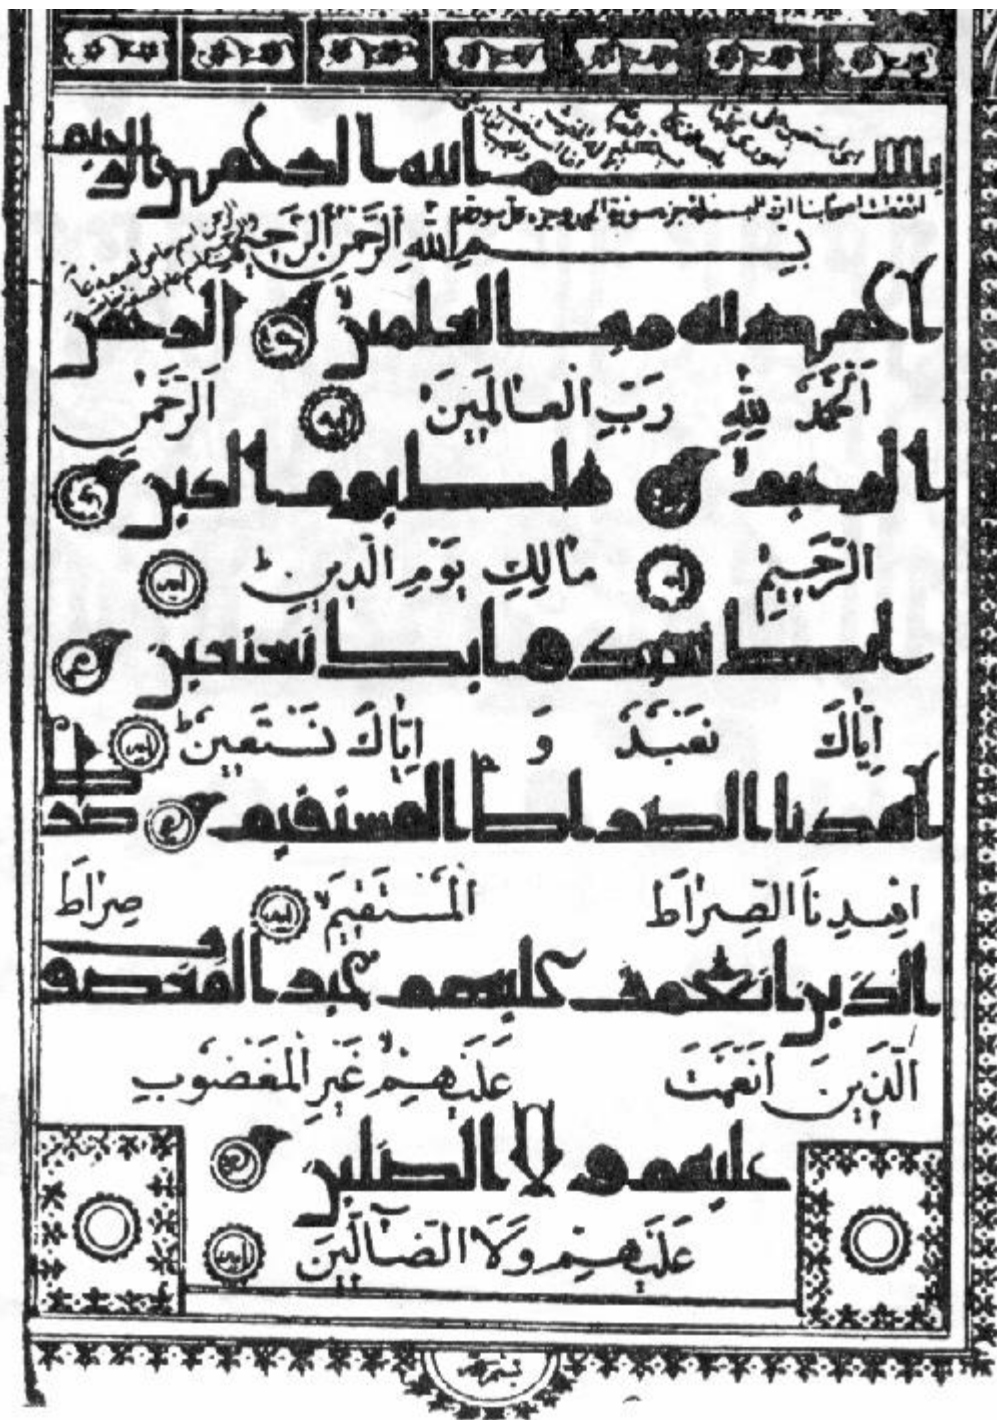 بسم الله الرحمن الرحيم
بِسْمِ اللهِ الرَّحْمٰنِ الرَّحِيمِ
الحمد لله رب العلمين الرحمن
اَلْحَمْدُ لِلّٰهِ رَبِّ الْعَالَمِينَ الرَّحْمٰنِ
الرحيم ملك يوم الدين
الرَّحِيمِ مَالِكِ يَوْمِ الدِّينِ
اياك نعبد و اياك نستعين
اِيَّاكَ نَعْبُدُ وَ اِيَّاكَ نَسْتَعِينُ
اهدنا الصراط المستقيم صراط
اِهْدِنَا الصِّرَاطَ الْمُسْتَقِيمَ صِرَاطَ
الذين انعمت عليهم غير المغضو
اَلَّذِينَ اَنْعَمْتَ عَلَيْهِمْ غَيْرِ الْمَغْضُوبِ
عليهم و لا الضلين
عَلَيْهِمْ وَلَا الضَّآلِّينَ